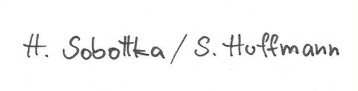 H. Sobottka / S. Hoffmann